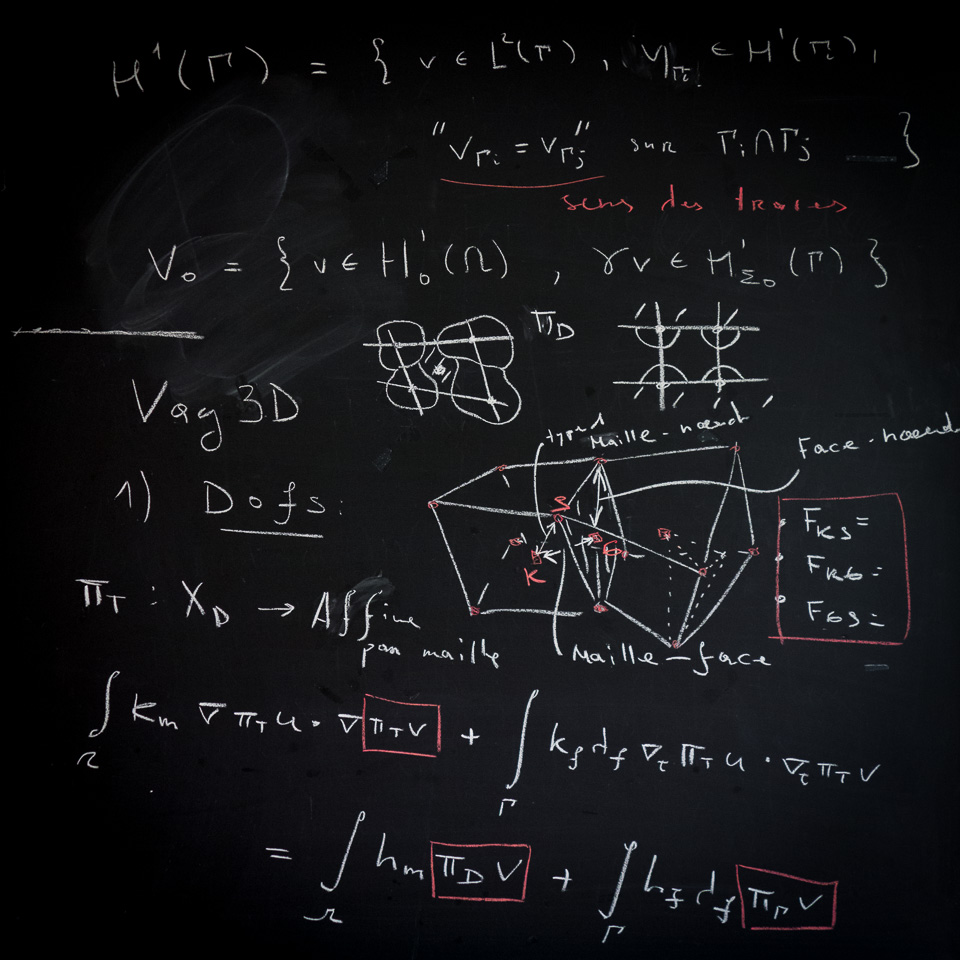 H¹(Γ) = { v ∈ L²(Γ), v|Γi ∈ H¹(Γi),
"vΓi = vΓj" sur Γi∩Γj }
sens des traces
V₀ = { v ∈ H¹₀(Ω) , γv ∈ H¹Σ₀(Γ) }
ΠD
Vag 3D
Maille-noeud
Face-noeud
1) Dofs:
S
K
σ
FKS=
FKσ=
Fσs=
ΠT : XD → Affine
par maille
Maille-face
∫Ω Km ∇ΠT u · ∇ΠT v + ∫Γ Kf df ∇τ ΠT u · ∇τ ΠT v
= ∫Ω hm ΠD v + ∫Γ hf df ΠΓ v